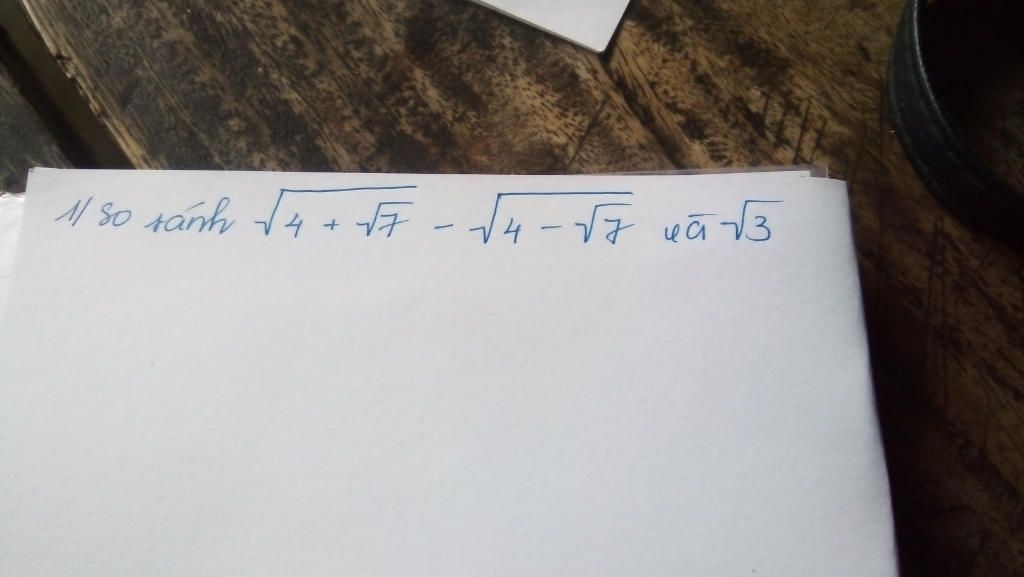 1/ so sánh √(4 + √7) - √(4 - √7) và √3